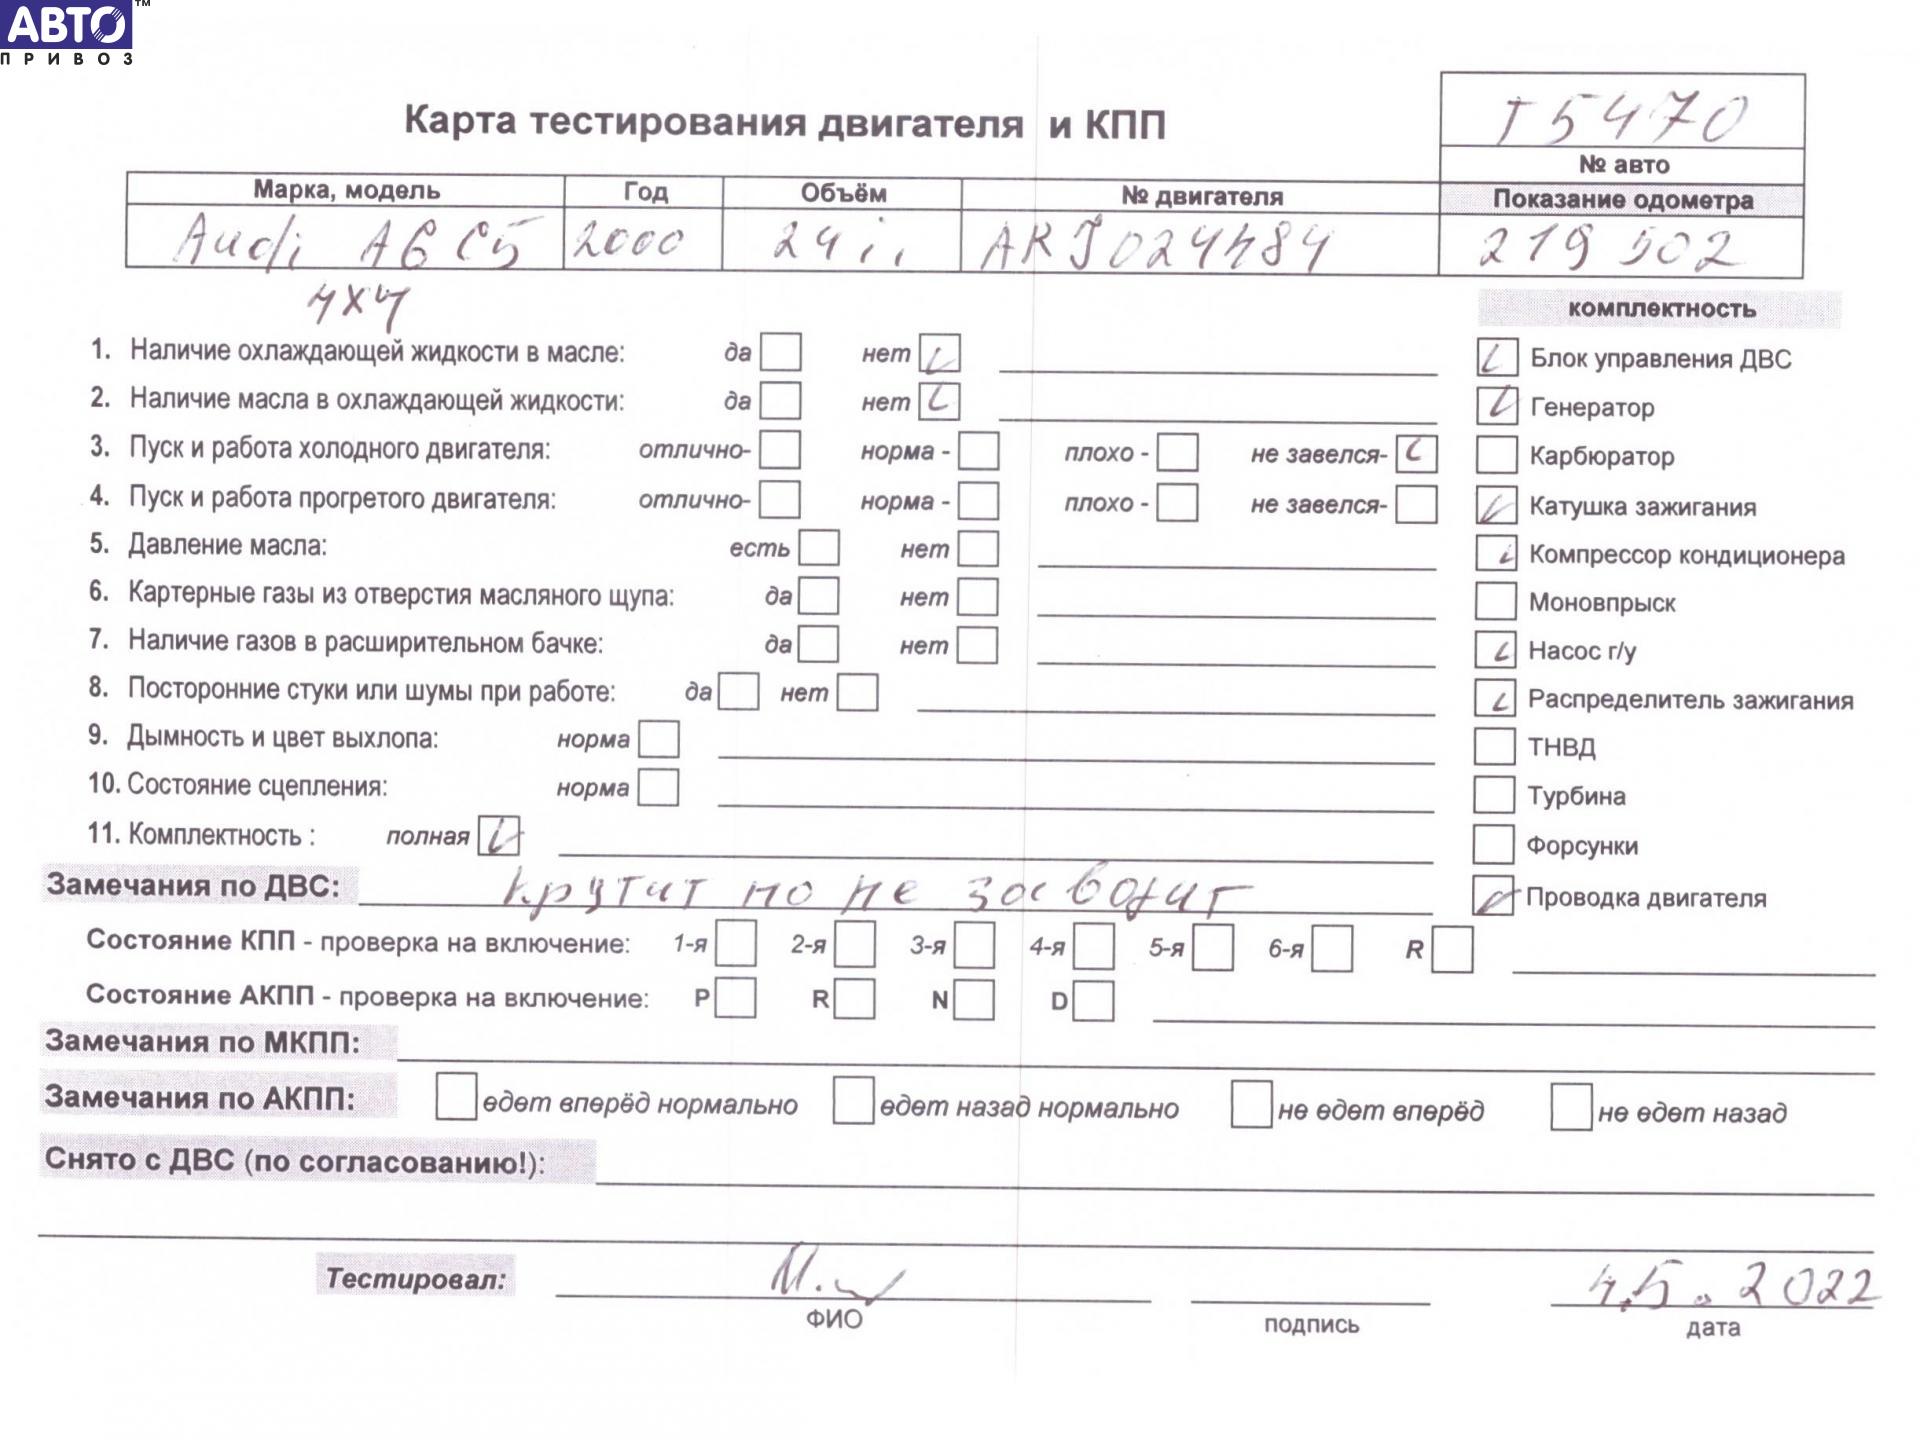 АВТО™
ПРИВОЗ
Т5470
Карта тестирования двигателя и КПП
№ авто
Марка, модель Год Объём № двигателя Показание одометра
Audi A6 C5 2000 24ii ARJ024484 219 502
4X4
комплектность
1. Наличие охлаждающей жидкости в масле: да нет
Блок управления ДВС
2. Наличие масла в охлаждающей жидкости: да нет
Генератор
3. Пуск и работа холодного двигателя: отлично- норма - плохо - не завелся-
Карбюратор
4. Пуск и работа прогретого двигателя: отлично- норма - плохо - не завелся-
Катушка зажигания
5. Давление масла: есть нет
Компрессор кондиционера
6. Картерные газы из отверстия масляного щупа: да нет
Моновпрыск
7. Наличие газов в расширительном бачке: да нет
Насос г/у
8. Посторонние стуки или шумы при работе: да нет
Распределитель зажигания
9. Дымность и цвет выхлопа: норма
ТНВД
10. Состояние сцепления: норма
Турбина
11. Комплектность : полная
Форсунки
Замечания по ДВС: крутит но не заводит
Проводка двигателя
Состояние КПП - проверка на включение: 1-я 2-я 3-я 4-я 5-я 6-я R
Состояние АКПП - проверка на включение: P R N D
Замечания по МКПП:
Замечания по АКПП: едет вперёд нормально едет назад нормально не едет вперёд не едет назад
Снято с ДВС (по согласованию!):
Тестировал: 4.5.2022
ФИО подпись дата